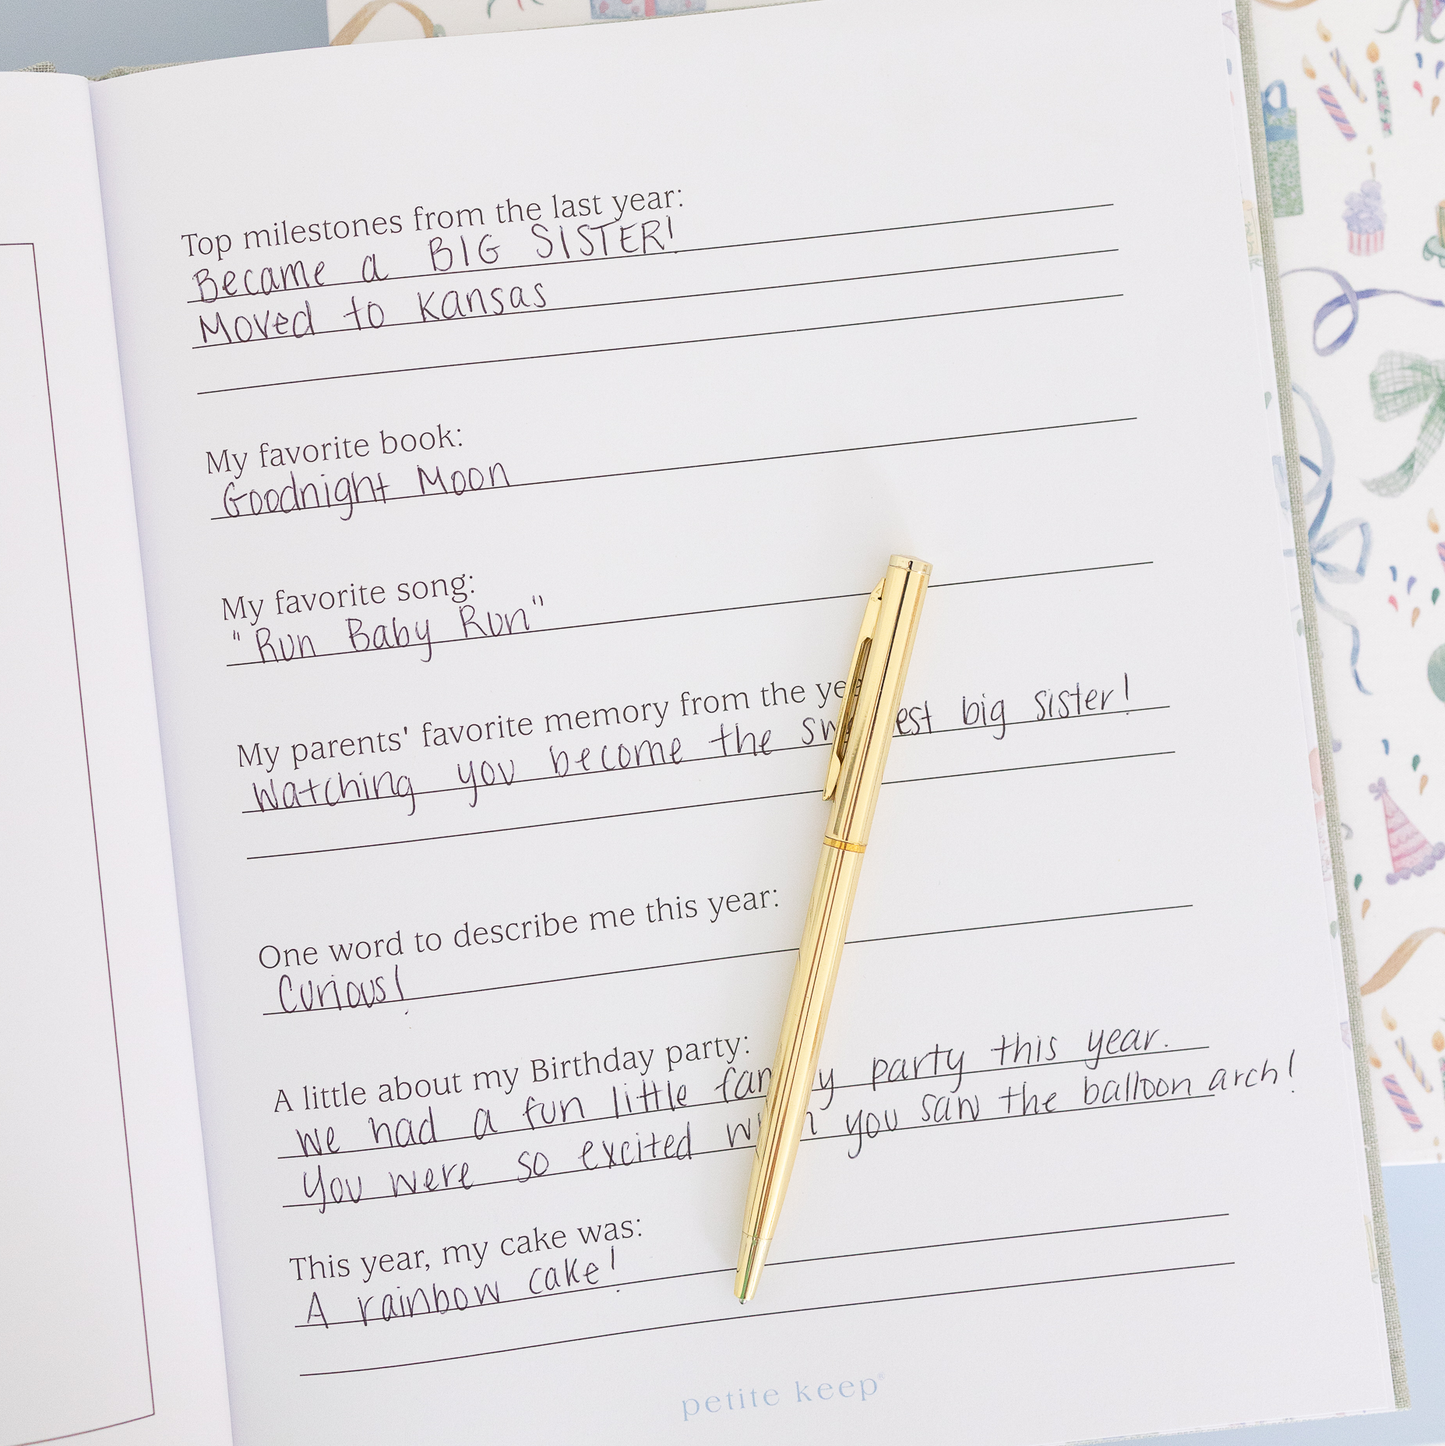 Top milestones from the last year:
Became a BIG SISTER!
Moved to Kansas
My favorite book:
Goodnight Moon
My favorite song:
"Run Baby Run"
My parents' favorite memory from the
Watching you become the big sister!
One word to describe me this year:
Curious!
A little about my Birthday party:
we had a fun little party this year.
you were so excited you saw the balloon arch!
This year, my cake was:
A rainbow cake!
petite keep